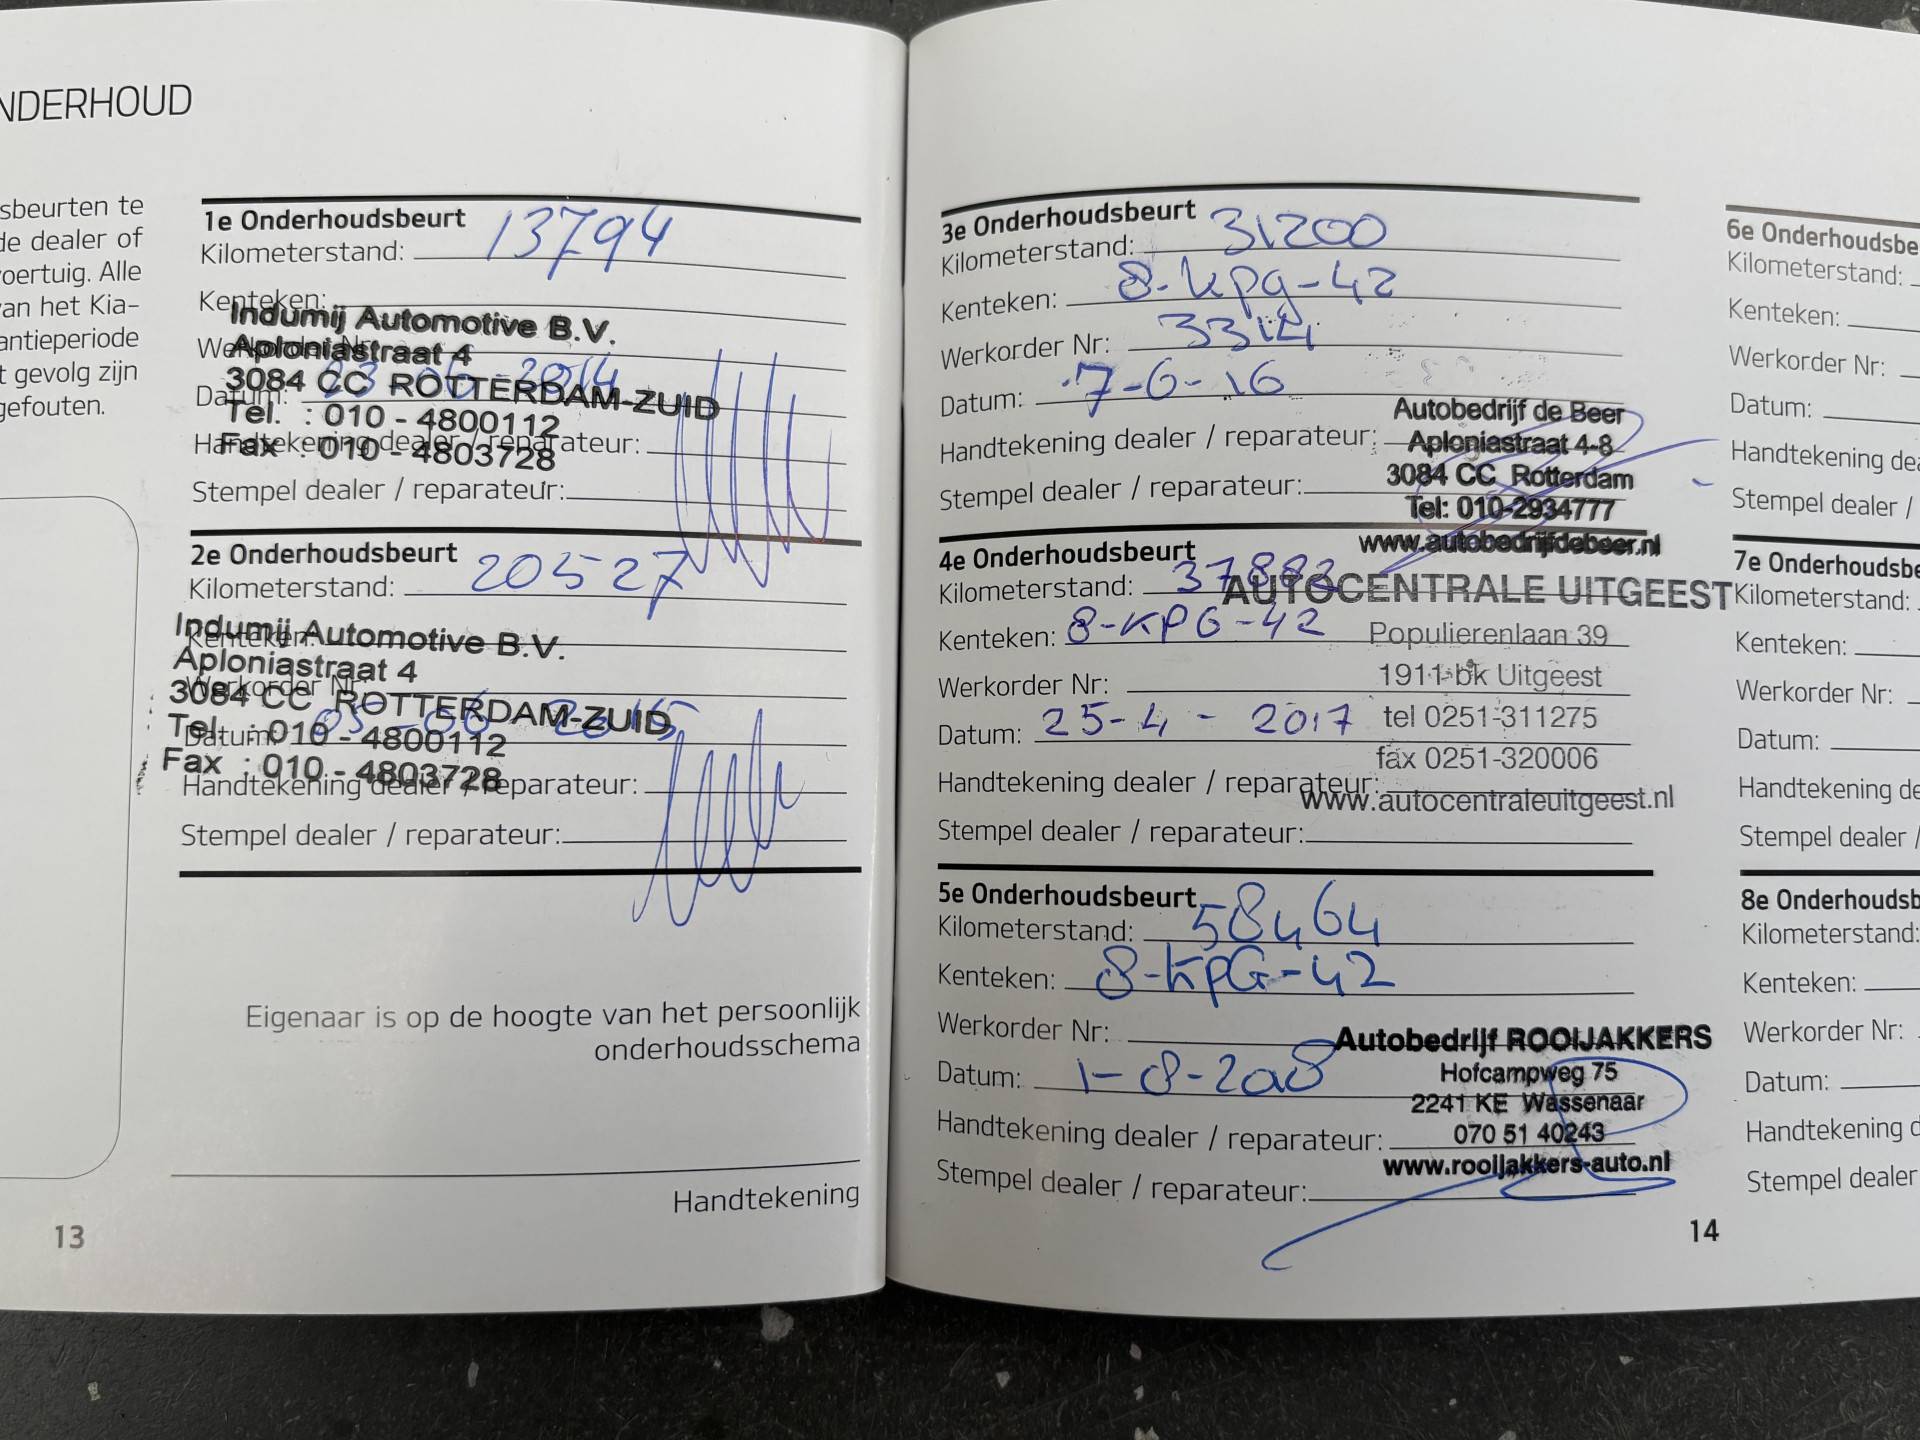 NDERHOUD
sbeurten te
de dealer of
voertuig. Alle
van het Kia-
antieperiode
t gevolg zijn
gefouten.
1e Onderhoudsbeurt
Kilometerstand: 13794
Kenteken:
Indumij Automotive B.V.
Werkorder Nr:
Aploniastraat 4
3084 CC ROTTERDAM-ZUID
Datum: 23-06-2014
Tel. : 010 - 4800112
Handtekening dealer / reparateur:
Fax : 010 - 4803728
Stempel dealer / reparateur:
2e Onderhoudsbeurt
Kilometerstand: 20527
Kenteken:
Indumij Automotive B.V.
Aploniastraat 4
Werkorder Nr:
3084 CC ROTTERDAM-ZUID
Datum: 05-06 2015
Tel. : 010 - 4800112
Fax : 010 - 4803728
Handtekening dealer / reparateur:
Stempel dealer / reparateur:
Eigenaar is op de hoogte van het persoonlijk
onderhoudsschema
Handtekening
13
3e Onderhoudsbeurt
Kilometerstand: 31200
Kenteken: 8-kpg-42
Werkorder Nr: 3314
Datum: 7-6-16
Handtekening dealer / reparateur:
Stempel dealer / reparateur:
Autobedrijf de Beer
Aploniastraat 4-8
3084 CC Rotterdam
Tel: 010-2934777
www.autobedrijfdebeer.nl
4e Onderhoudsbeurt
Kilometerstand: 37882
Kenteken: 8-KPG-42
Werkorder Nr:
Datum: 25-4-2017
Handtekening dealer / reparateur:
Stempel dealer / reparateur:
AUTOCENTRALE UITGEEST
Populierenlaan 39
1911 bk Uitgeest
tel 0251-311275
fax 0251-320006
www.autocentraleuitgeest.nl
5e Onderhoudsbeurt
Kilometerstand: 58464
Kenteken: 8-KpG-42
Werkorder Nr:
Datum: 1-8-2018
Handtekening dealer / reparateur:
Stempel dealer / reparateur:
Autobedrijf ROOIJAKKERS
Hofcampweg 75
2241 KE Wassenaar
070 51 40243
www.rooijakkers-auto.nl
14
6e Onderhoudsbe
Kilometerstand:
Kenteken:
Werkorder Nr:
Datum:
Handtekening dea
Stempel dealer /
7e Onderhoudsbe
Kilometerstand:
Kenteken:
Werkorder Nr:
Datum:
Handtekening de
Stempel dealer /
8e Onderhoudsb
Kilometerstand:
Kenteken:
Werkorder Nr:
Datum:
Handtekening d
Stempel dealer